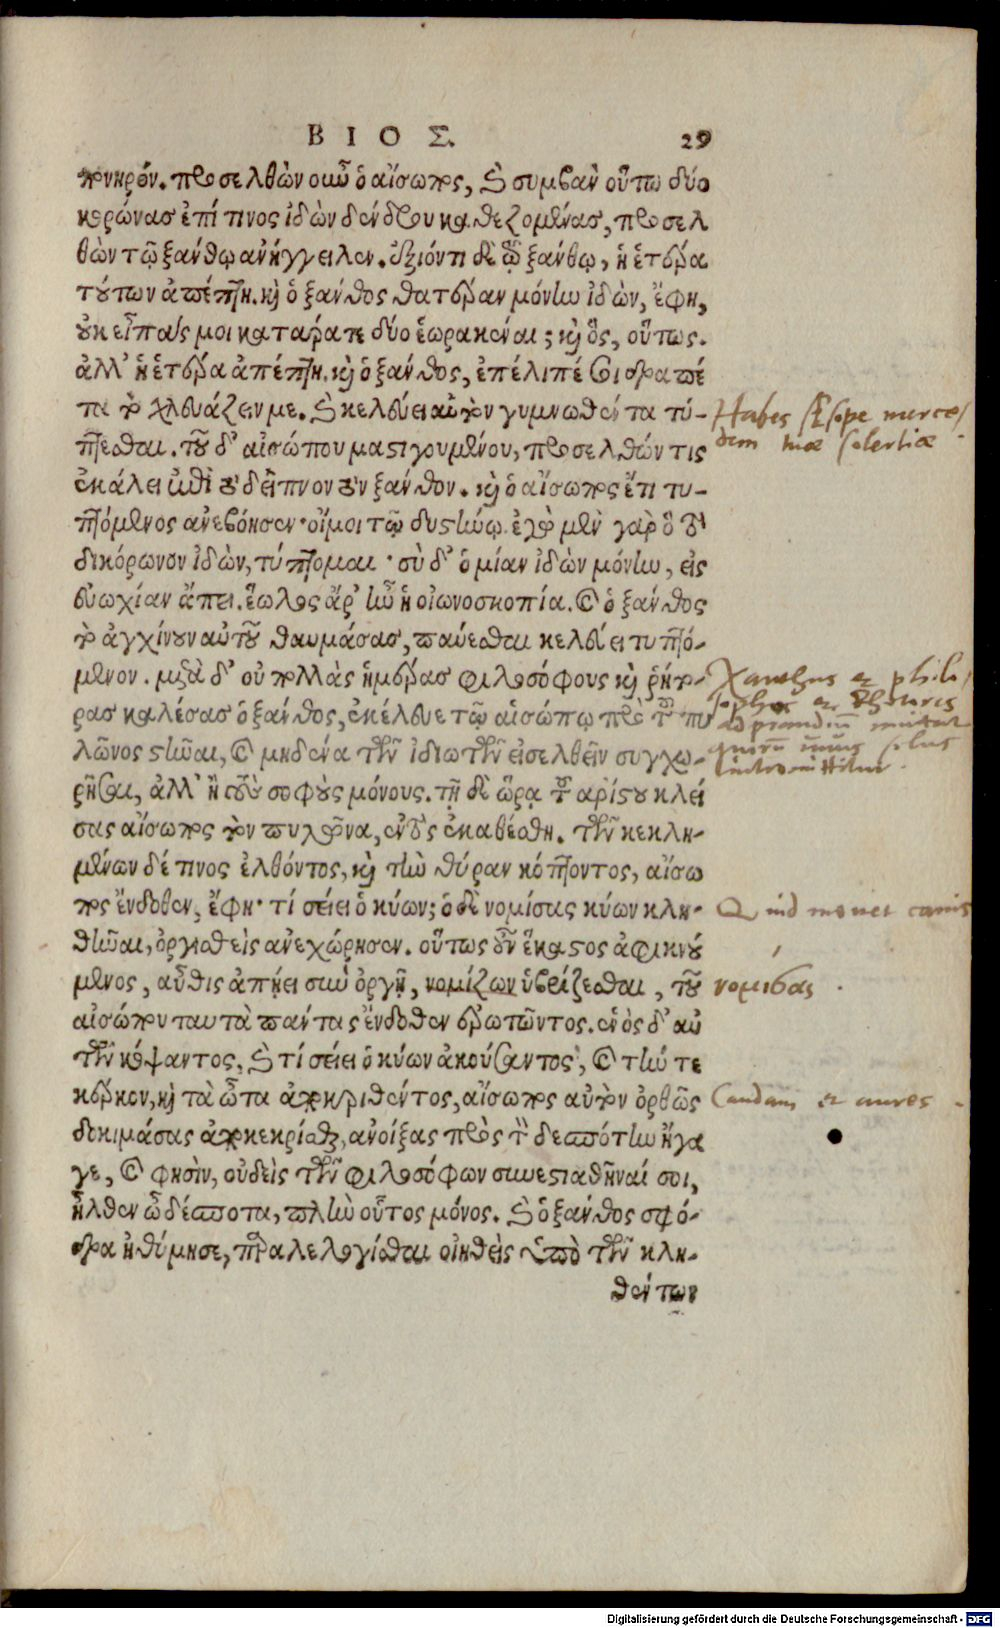 ΒΙΟΣ. 29
πονηρόν. προσελθὼν οὖν ὁ αἴσωπος, καὶ συμβὰν οὕτω δύο
κορώνας ἐπί τινος ἰδὼν δένδρου καθεζομένας, προσελ
θὼν τῷ ξάνθῳ ἀνήγγειλεν. ἐξιόντι δὲ τῷ ξάνθῳ, ἡ ἑτέρα
τούτων ἀπέπτη. καὶ ὁ ξάνθος θατέραν μόνην ἰδὼν, ἔφη,
οὐκ εἶπας μοι κατάρατε δύο ἑωρακέναι; καὶ ὃς, οὕτως.
ἀλλ' ἡ ἑτέρα ἀπέπτη. καὶ ὁ ξάνθος, ἐπέλιπέ σοι δραπέ
τα τὸ χλευάζειν με. καὶ κελεύει αὐτὸν γυμνωθέντα τύ-
πτεσθαι. τοῦ δ' αἰσώπου μαστιγουμένου, προσελθών τις
ἐκάλει ἐπὶ τὸ δεῖπνον τὸν ξάνθον. καὶ ὁ αἴσωπος ἔτι τυ-
πτόμενος ἀνεβόησεν· οἴμοι τῷ δυστήνῳ. ἐγὼ μὲν γὰρ ὁ τὸ
δικόρωνον ἰδὼν, τύπτομαι· σὺ δ' ὁ μίαν ἰδὼν μόνην, εἰς
εὐωχίαν ἄπει. ἕωλος ἄρ' ἦν ἡ οἰωνοσκοπία. καὶ ὁ ξάνθος
τὸ ἀγχίνουν αὐτοῦ θαυμάσας, παύεσθαι κελεύει τυπτό-
μενον. μετὰ δ' οὐ πολλὰς ἡμέρας φιλοσόφους καὶ ῥήτο-
ρας καλέσας ὁ ξάνθος, ἐκέλευε τῷ αἰσώπῳ πρὸ τοῦ πυ
λῶνος στῆναι, καὶ μηδένα τῶν ἰδιωτῶν εἰσελθεῖν συγχω-
ρῆσαι, ἀλλ' ἢ τοὺς σοφοὺς μόνους. τῇ δὲ ὥρᾳ τοῦ ἀρίστου κλεί
σας αἴσωπος τὸν πυλῶνα, ἐντὸς ἐκαθέσθη. τῶν κεκλη-
μένων δέ τινος ἐλθόντος, καὶ τὴν θύραν κόπτοντος, αἴσω
πος ἔνδοθεν, ἔφη· τί σείει ὁ κύων; ὁ δὲ νομίσας κύων κλη-
θῆναι, ὀργισθεὶς ἀνεχώρησεν. οὕτως οὖν ἕκαστος ἀφικνού
μενος, αὖθις ἀπῄει σὺν ὀργῇ, νομίζων ὑβρίζεσθαι, τοῦ
αἰσώπου ταυτὰ πάντας ἔνδοθεν ἐρωτῶντος. ἑνὸς δ' αὐ
τῶν κόψαντος, καὶ τί σείει ὁ κύων ἀκούσαντος, καὶ τήν τε
κέρκον, καὶ τὰ ὦτα ἀποκριθέντος, αἴσωπος αὐτὸν ὀρθῶς
δοκιμάσας ἀποκεκρίσθαι, ἀνοίξας πρὸς τὸν δεσπότην ἤγα
γε, καὶ φησὶν, οὐδεὶς τῶν φιλοσόφων συνεστιαθῆναί σοι,
ἦλθεν ὦ δέσποτα, πλὴν οὗτος μόνος. καὶ ὁ ξάνθος σφό-
δρα ἠθύμησε, παραλελογίσθαι οἰηθεὶς ὑπὸ τῶν κλη-
θέντων
Habes Æsope merce/
dem tuæ solertiæ.
Xanthus et philo/
sophos et Rhetores
ad prandiũ invitat
quorũ unus solus
intromittitur.
Quid movet canis
νομίσας.
Caudam et aures
Digitalisierung gefördert durch die Deutsche Forschungsgemeinschaft - DFG